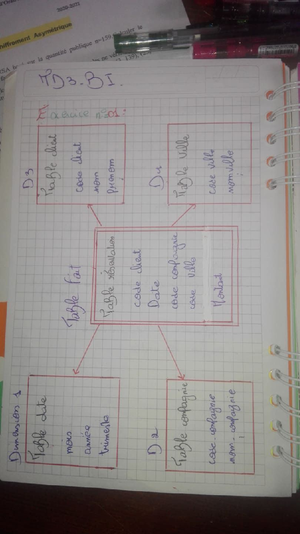 TD3. BI.
D3
Table client
code client
nom
prenom
D4
Table Ville
code ville
nom ville
Table Fait
code client
Date
code compagnie
code ville
Montant
Dimension 1
Table date
mois
année
trimestre
D2
Table compagnie
code compagnie
nom-compagnie
chiffrement Asymétrique